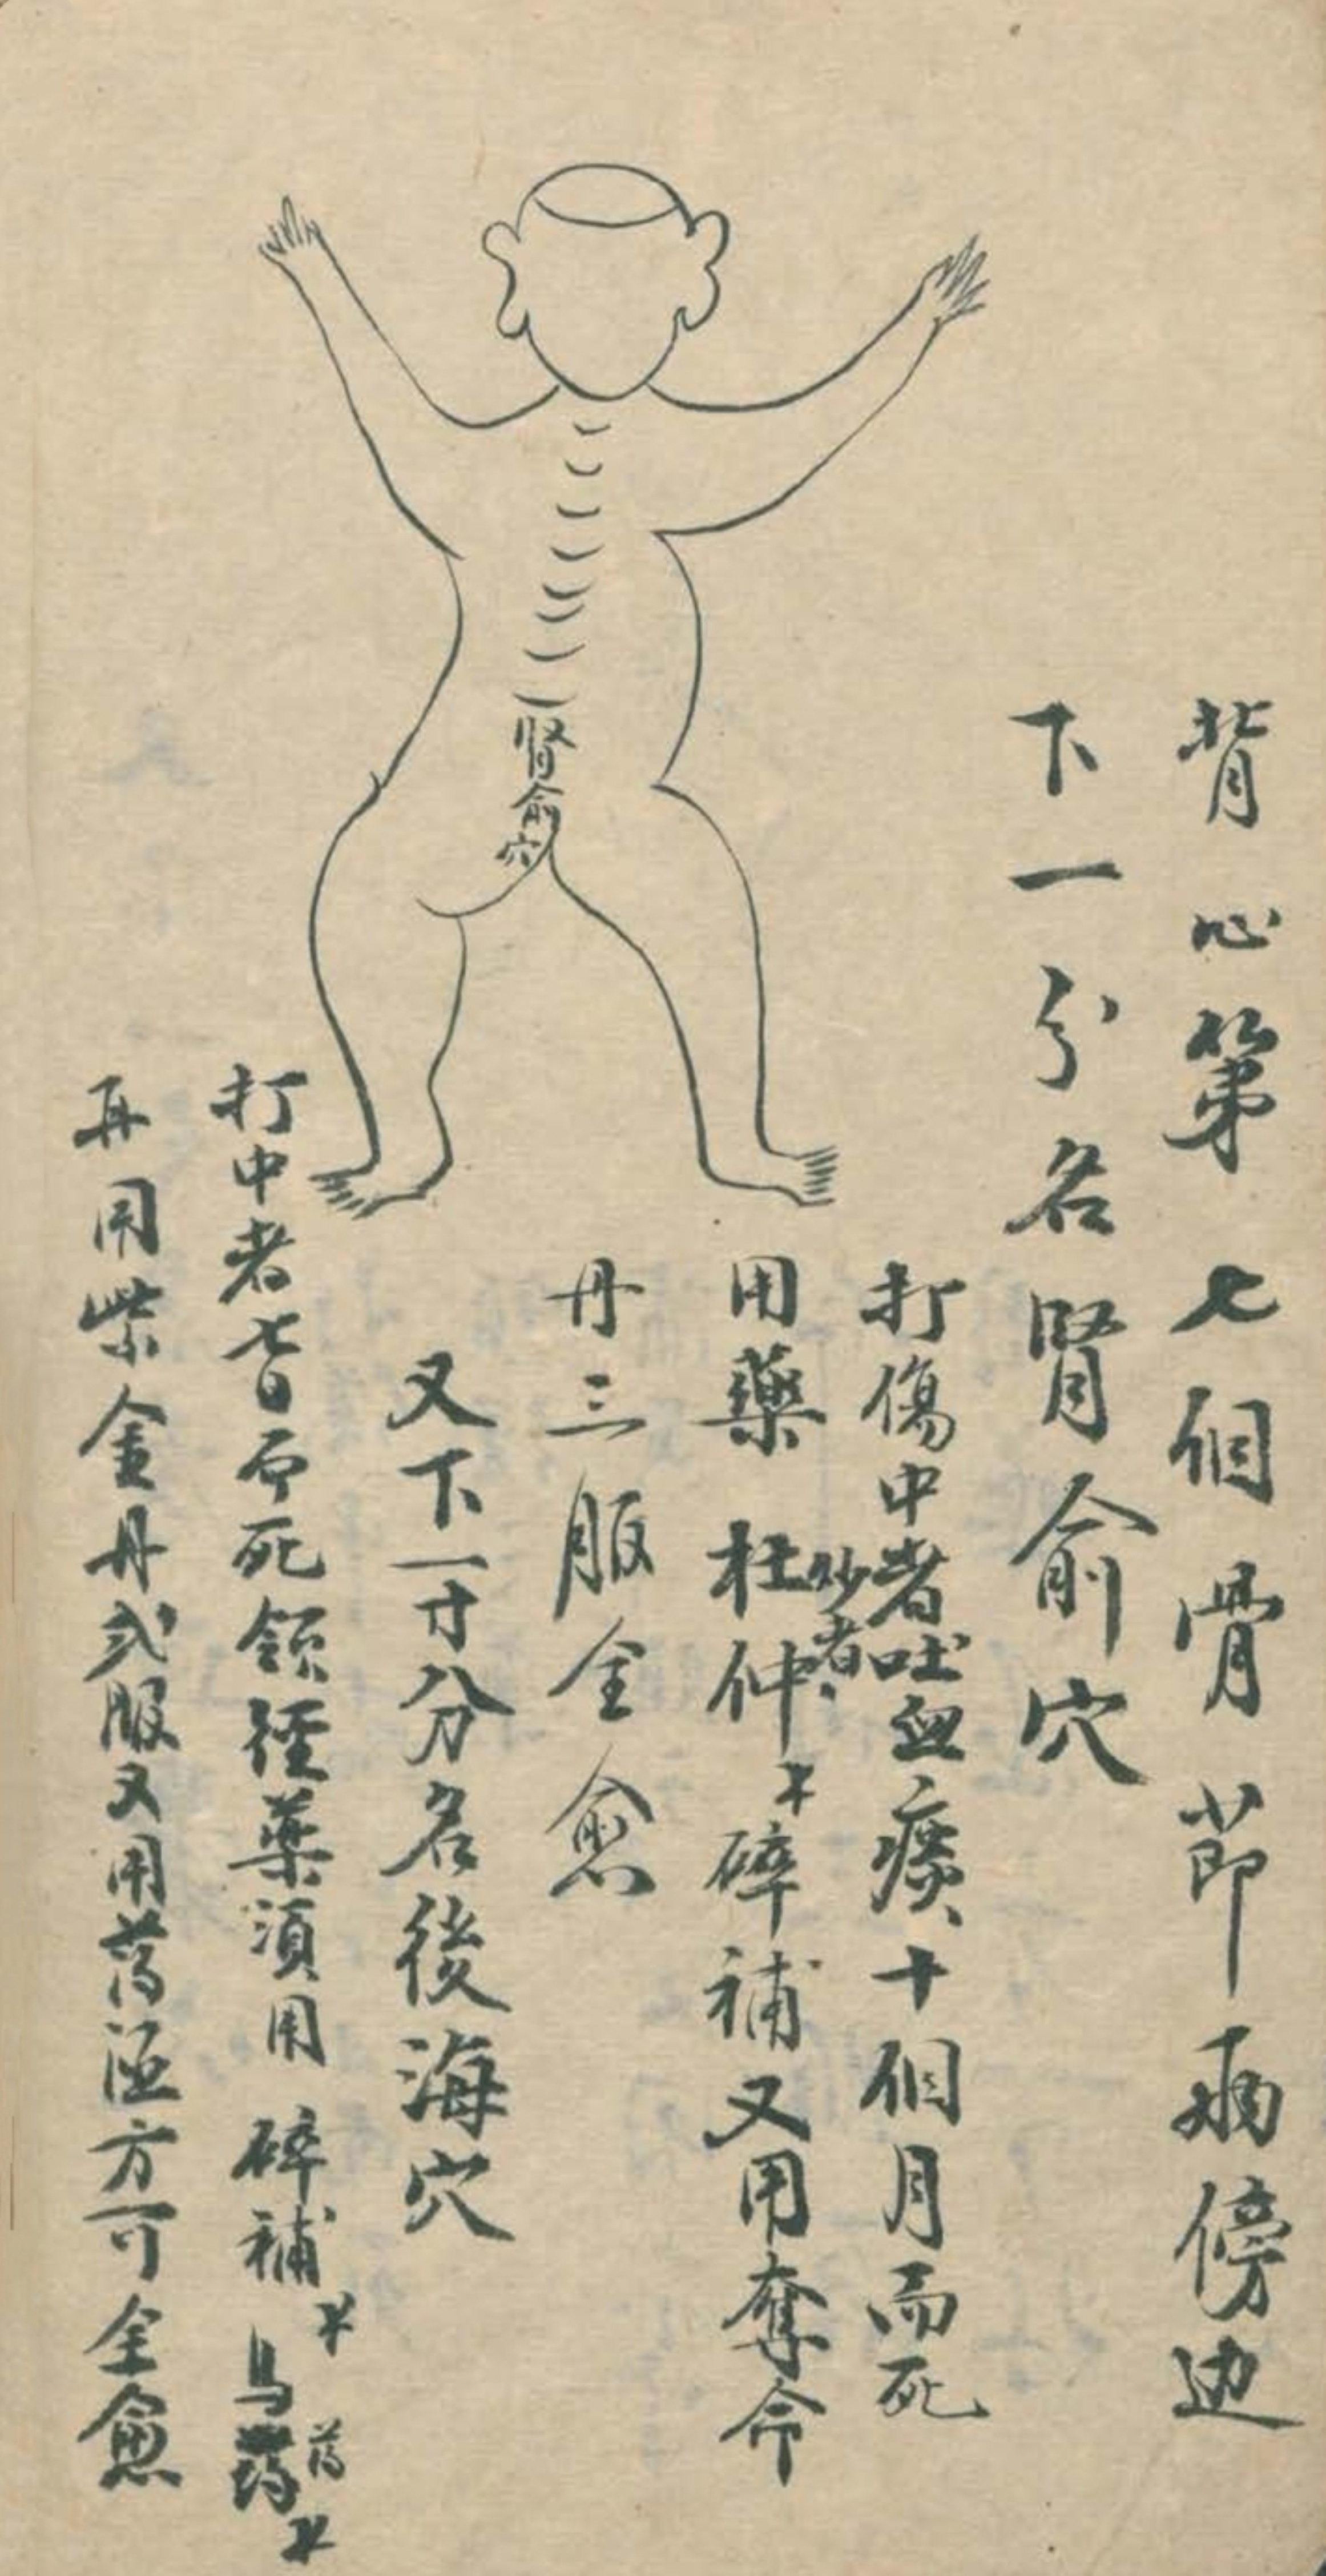 背心第七個骨節両傍边
下一分名腎俞穴
打傷中者吐血痰十個月而死
用藥 杜仲炒者 碎補又用奪命
丹三服全愈
又下一寸分名後海穴
打中者七日而死領經藥須用 碎補 烏药
再用紫金丹弍服又用药酒方可全愈
腎俞穴